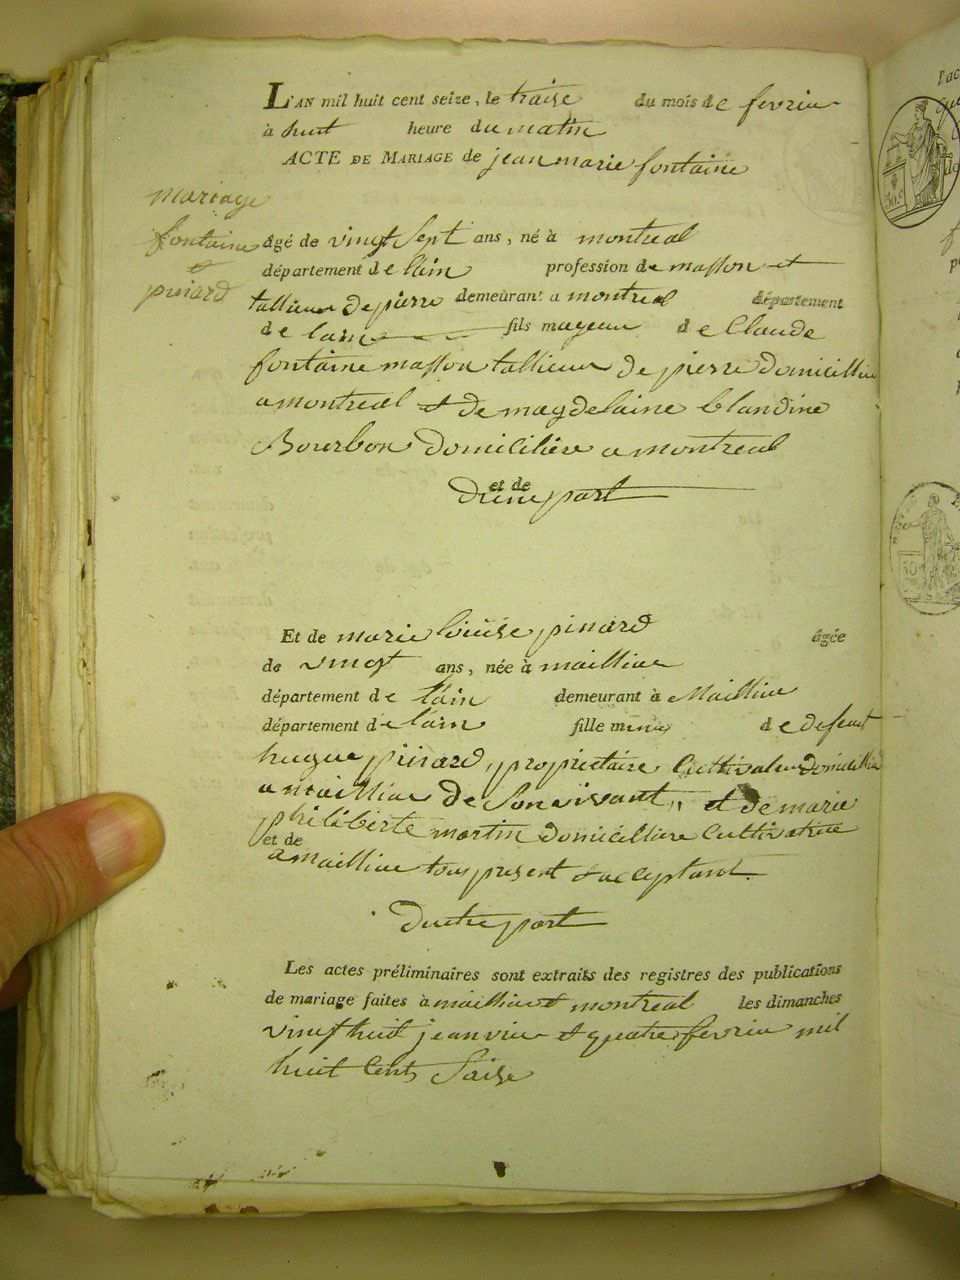 L'AN mil huit cent seize, le traize du mois de fevrier
à huit heure du matin
ACTE DE MARIAGE de jean marie fontaine
mariage
fontaine
et
pinard
âgé de vingt Sept ans, né à montreal
département de lain profession de masson et
tallieur de pierre demeurant a montreal département
de lain fils mageur de Claude
fontaine masson tallieur de pierre domicillie
a montreal et de magdelaine blandine
Bourbon domicilière a montreal
et de
d'une part
Et de marie louise pinard âgée
de vingt ans, née à maillia
département de l'ain demeurant à Maillia
département de lain fille mineur de defeunt
hugue pinard, propriétaire Cultivateur domicillié
a maillia de Son vivant, et de marie
philiberte martin domiciliere Cultivatrice
et de
a maillia tous present et acceptant
dautre part
Les actes préliminaires sont extraits des registres des publications
de mariage faites à maillia et montreal les dimanches
vingt huit jeanvier et quatre fevrier mil
huit Cents Saize